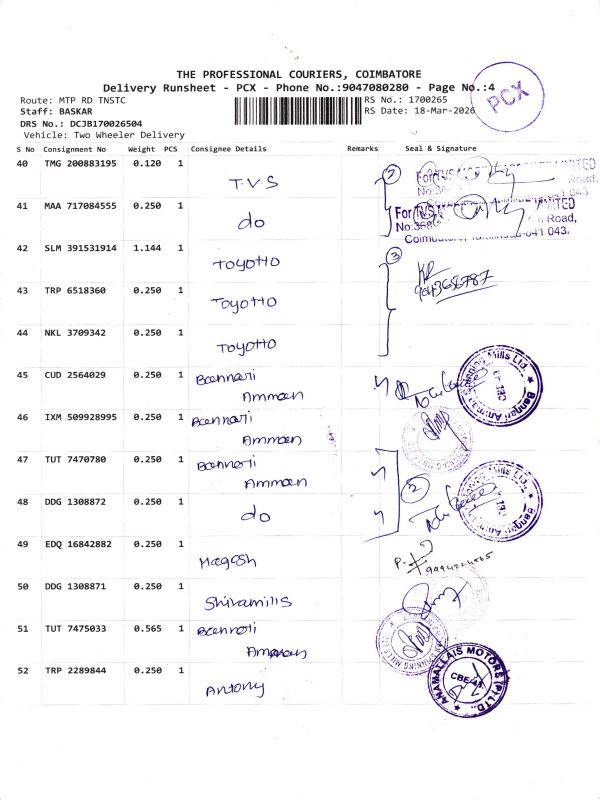 THE PROFESSIONAL COURIERS, COIMBATORE
Delivery Runsheet - PCX - Phone No.:9047080280 - Page No.:4
PCX
Route: MTP RD TNSTC
RS No.: 1700265
Staff: BASKAR
RS Date: 18-Mar-2026
DRS No.: DCJB170026504
Vehicle: Two Wheeler Delivery
S No Consignment No Weight PCS Consignee Details Remarks Seal & Signature
40 TMG 200883195 0.120 1 T.V.S
2
For TVS LIMITED
Road,
041 043
41 MAA 717084555 0.250 1 do
For TVS LIMITED
No:368 Road,
641 043.
42 SLM 391531914 1.144 1 Toyotto
3
43 TRP 6518360 0.250 1 Toyotto
44 NKL 3709342 0.250 1 Toyotto
45 CUD 2564029 0.250 1 Bannari
Amman
Mills Ltd.
46 IXM 509928995 0.250 1 Bannari
Amman
47 TUT 7470780 0.250 1 Bannari
Amman
2
Mills Ltd.
48 DDG 1308872 0.250 1 do
49 EDQ 16842882 0.250 1 Magesh
50 DDG 1308871 0.250 1 Shivamills
51 TUT 7475033 0.565 1 Bannari
Amman
SPINNING MILLS
52 TRP 2289844 0.250 1 Antony
ANAMALLAIS MOTORS (P) LTD.,
CBE-43